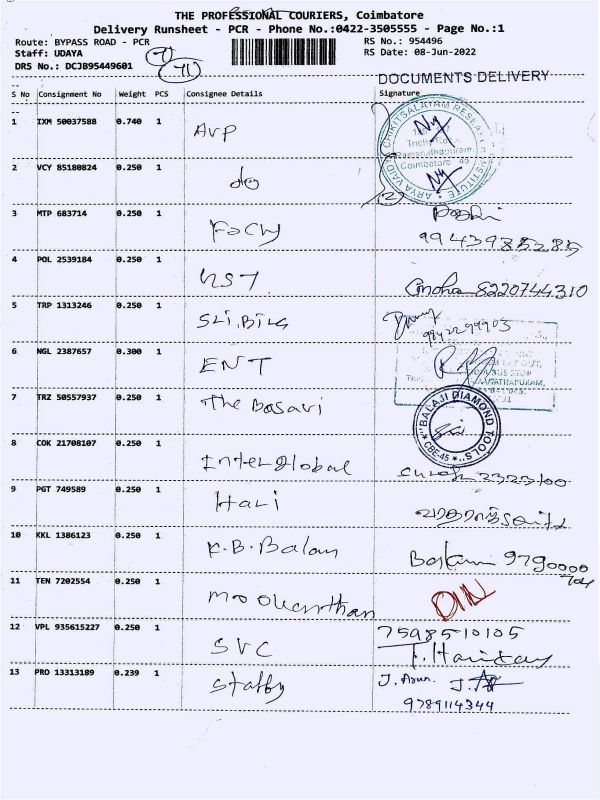 THE PROFESSIONAL COURIERS, Coimbatore
Delivery Runsheet - PCR - Phone No.:0422-3505555 - Page No.:1
Route: BYPASS ROAD - PCR
RS No.: 954496
Staff: UDAYA
RS Date: 08-Jun-2022
DRS No.: DCJB95449601
DOCUMENTS DELIVERY
S No Consignment No Weight PCS Consignee Details Signature
1 IXM 50037588 0.740 1 AVP
2 VCY 85180824 0.250 1 do
3 MTP 683714 0.250 1 9943985285
4 POL 2539184 0.250 1 8220744310
5 TRP 1313246 0.250 1 9942299903
6 NGL 2387657 0.300 1 ENT
7 TRZ 50557937 0.250 1 The Basavi
BALAJI DIAMOND TOOLS
CBE-45
8 COK 21708107 0.250 1 Inter global 2323100
9 PGT 749589 0.250 1 Hari
10 KKL 1386123 0.250 1 K.B. Balan 9790000
11 TEN 7202554 1
12 VPL 935615227 0.250 1 SVC 7598510105
13 PRO 13313189 0.239 1 J. Arun
9789114344